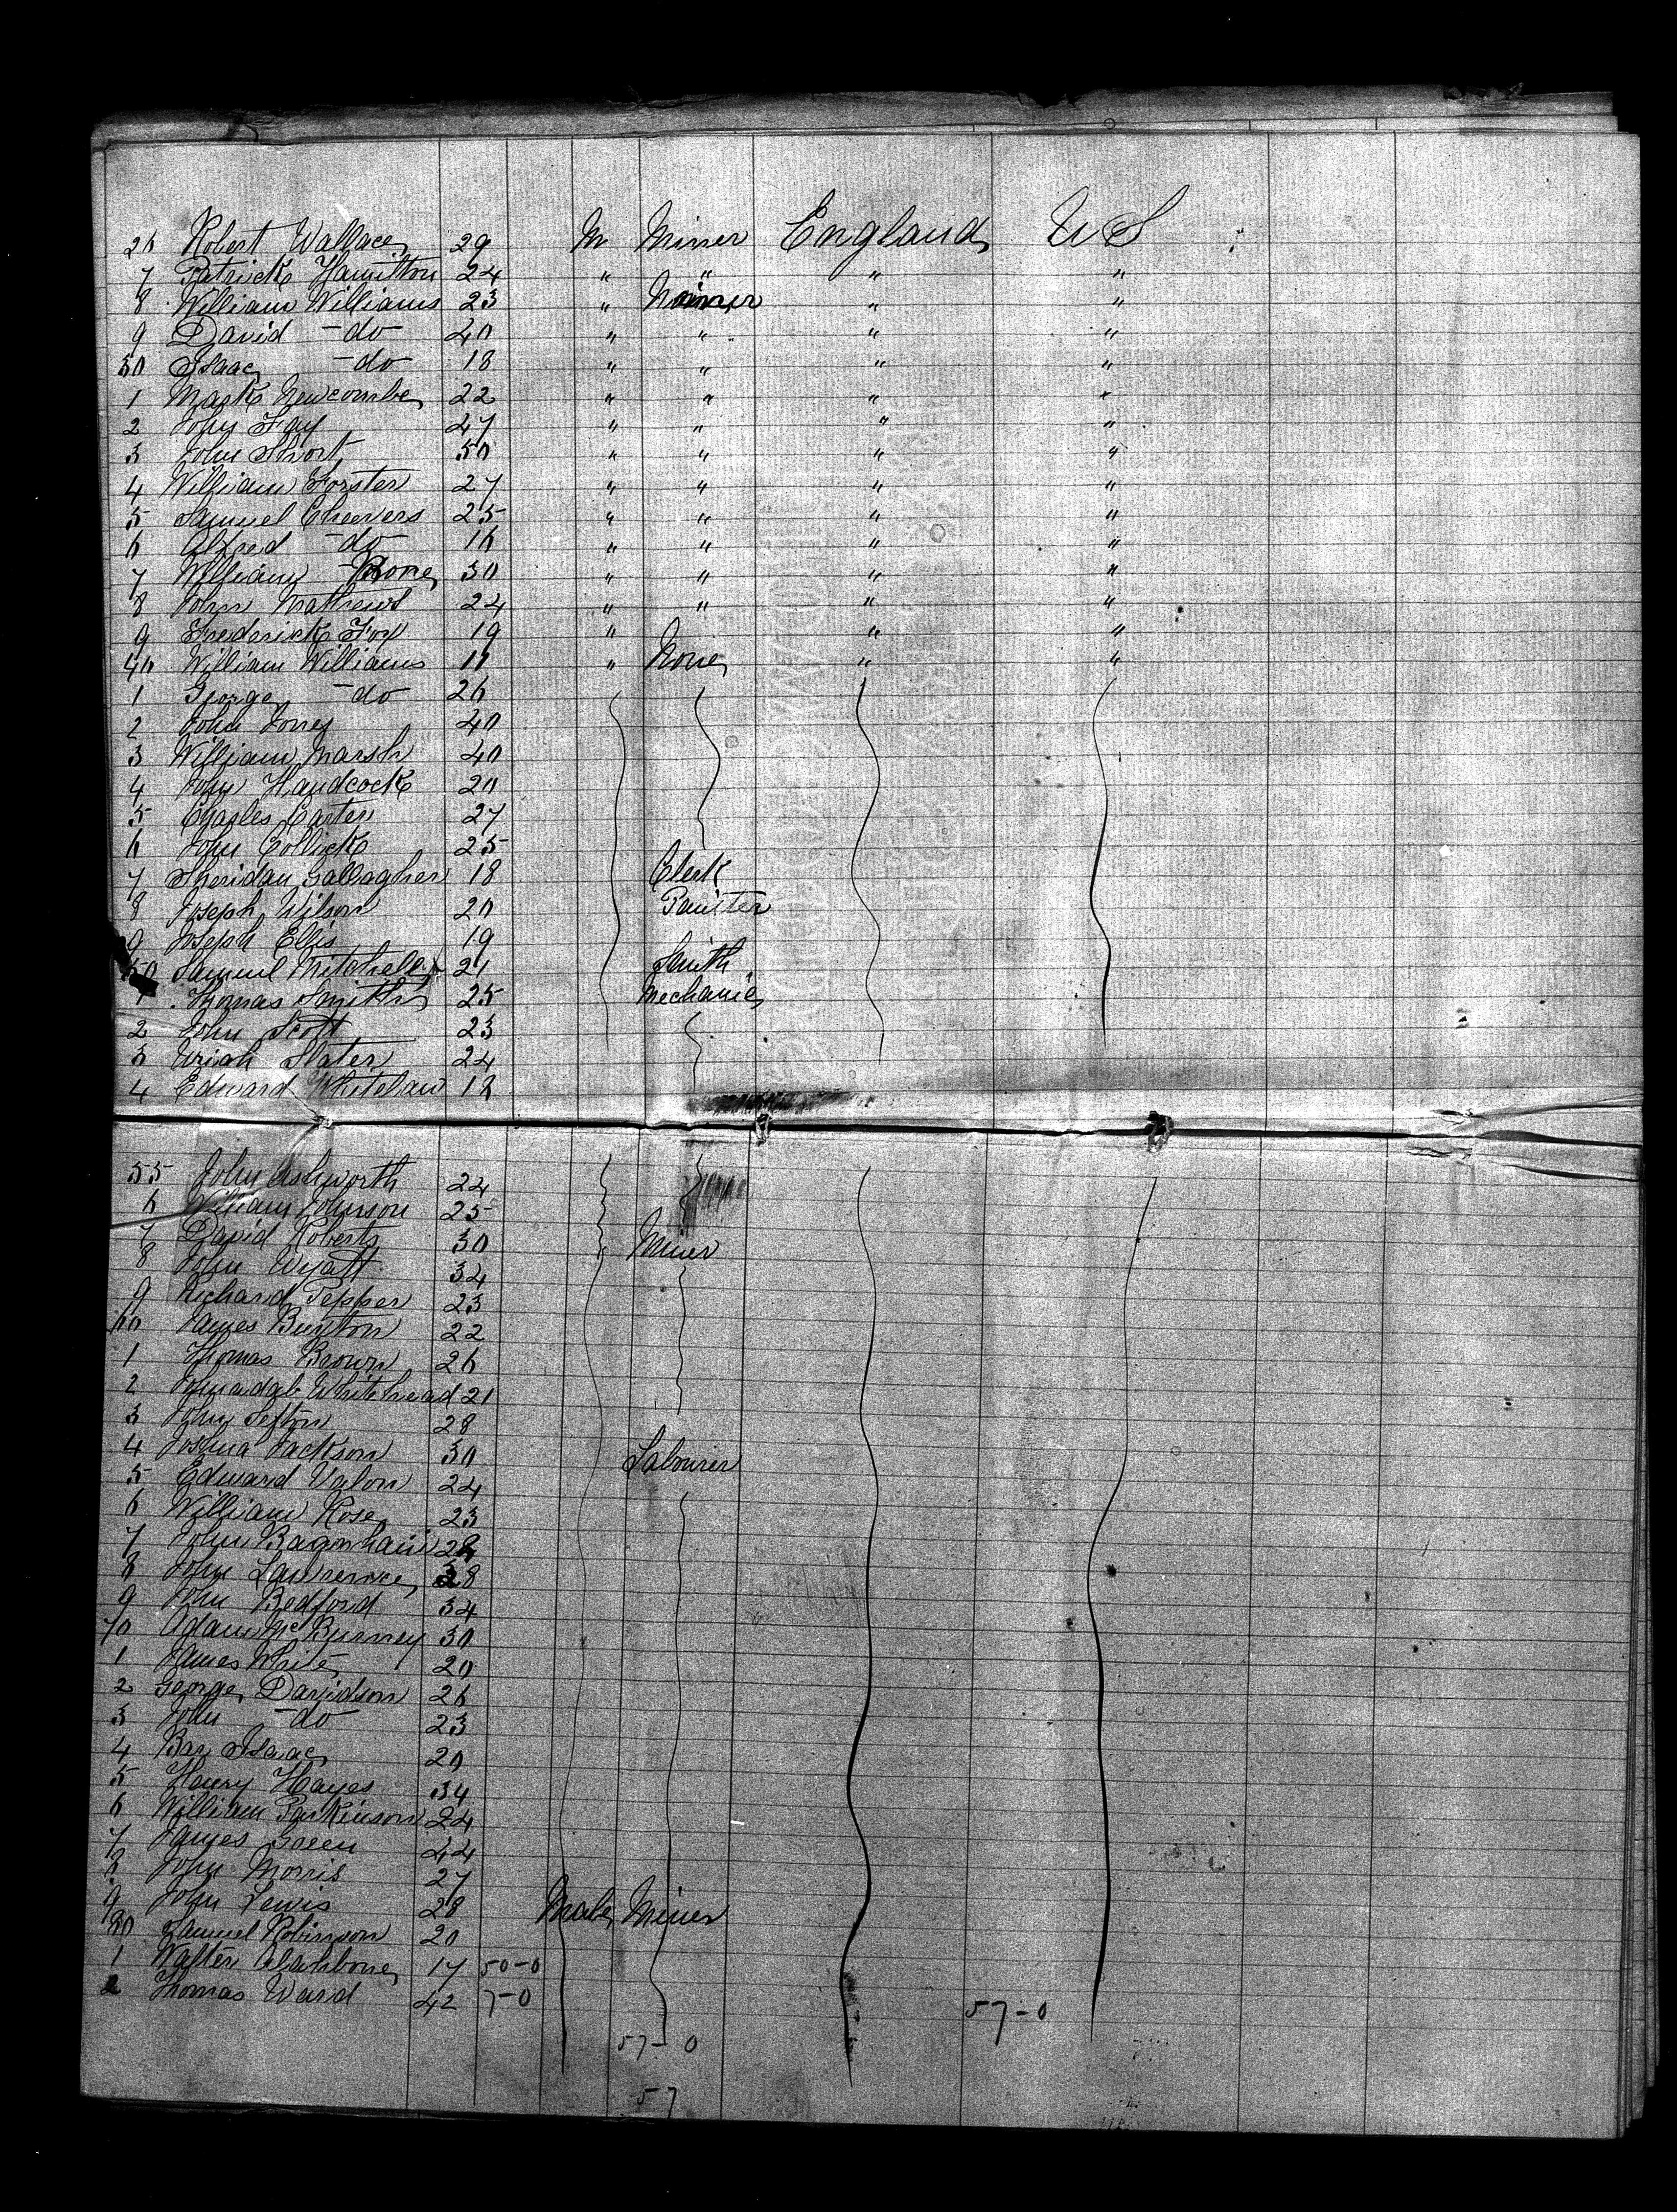 26 Robert Wallace 29 M Miner England U S
7 Patrick Hamilton 24 " " " "
8 William Williams 23 " " "
9 David - do 40 " " " "
30 Isaac - do 18 " " " "
1 Mark Newcombe 22 " " " "
2 John Fay 27 " " " "
3 John Short 50 " " " "
4 William Forster 27 " " " "
5 Samuel Cheevers 25 " " " "
6 Alfred - do 16 " " " "
7 William Rone 30 " " " "
8 John Mathews 24 " " " "
9 Frederick Fox 19 " " "
40 William Williams 11 " None " "
1 George - do 26
2 John Jones 40
3 William Marsh 40
4 John Handcock 20
5 Charles Carter 27
6 John Collick 25
7 Sheridan Gallagher 18 Clerk
8 Joseph Wilson 20 Painter
9 Joseph Ellis 19
50 Samuel Mitchell 21 Smith
1 Thomas Smith 25 Mechanic
2 John Scott 23
3 Uriah Slater 24
4 Edward Whitelaw 18
55 John Ashworth 24
6 William Johnson 25
7 David Roberts 30 Miner
8 John Wyatt 34
9 Richard Pepper 23
60 James Buxton 22
1 Thomas Brown 26
2 Whitehead 21
3 John Sefton 28
4 Joshua Jackson 30 Labourer
5 Edward 24
6 William Rose 23
7 John
8 John Lawrence 28
9 John Bedford 34
70 Adam McBurney 30
1 James White 20
2 George Davidson 26
3 John - do 23
4 Isaac 20
5 Henry Hayes 34
6 William Parkinson 24
7 James Green 44
8 John Morris 27
9 John Lewis 28 Male Miner
80 Samuel Robinson 20
1 Walter 17 50-0
2 Thomas Ward 42 7-0 57-0
57-0
57